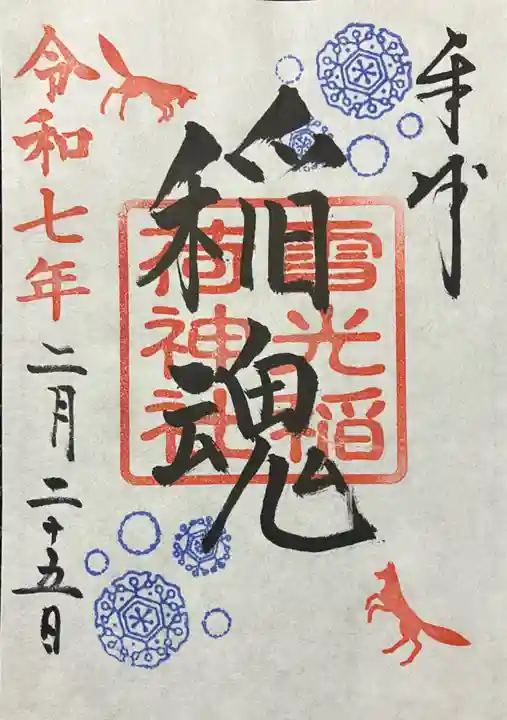 奉拝
稲魂
雪光稲
荷神社
令和七年二月二十五日